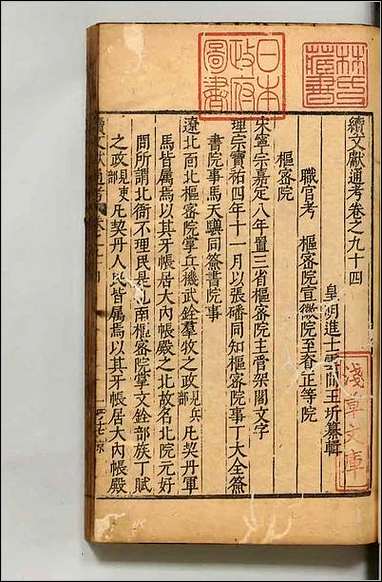 續文獻通考卷之九十四
皇明進士雲間王圻纂輯
職官考　樞密院宣徽院至脊正等院
樞密院
宋寧宗嘉定八年置三省樞密院主管架閣文字
理宗寶祐四年十一月以張磻同知樞密院事丁大全簽
書院事馬天驥同簽書院事
遼北面北樞密院掌兵機武銓羣牧之政見兵部凡契丹軍
馬皆屬焉以其牙帳居大內帳殿之北故名北院元好
問所謂北衙不理民是也南樞密院掌文銓部族丁賦
之政見吏部凡契丹人民皆屬焉以其牙帳居大內帳殿
續文獻通考
日本政府圖書
林氏藏書
淺草文庫